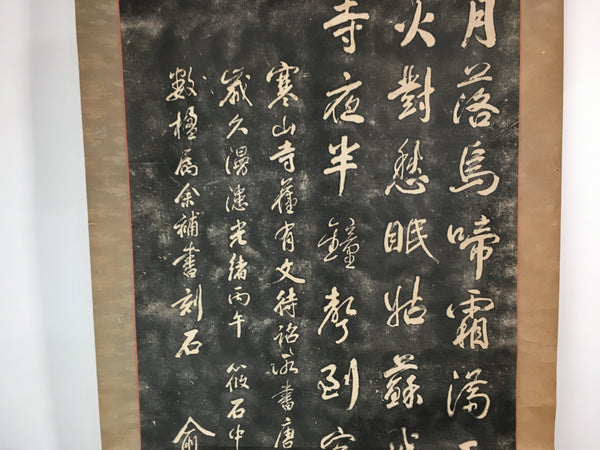 月落烏啼霜滿
火對愁眠姑蘇城
寺夜半鐘聲到客
寒山寺舊有文待詔所書唐
歲久漫漶光緒丙午 筱石中
數楹屬余補書刻石
俞